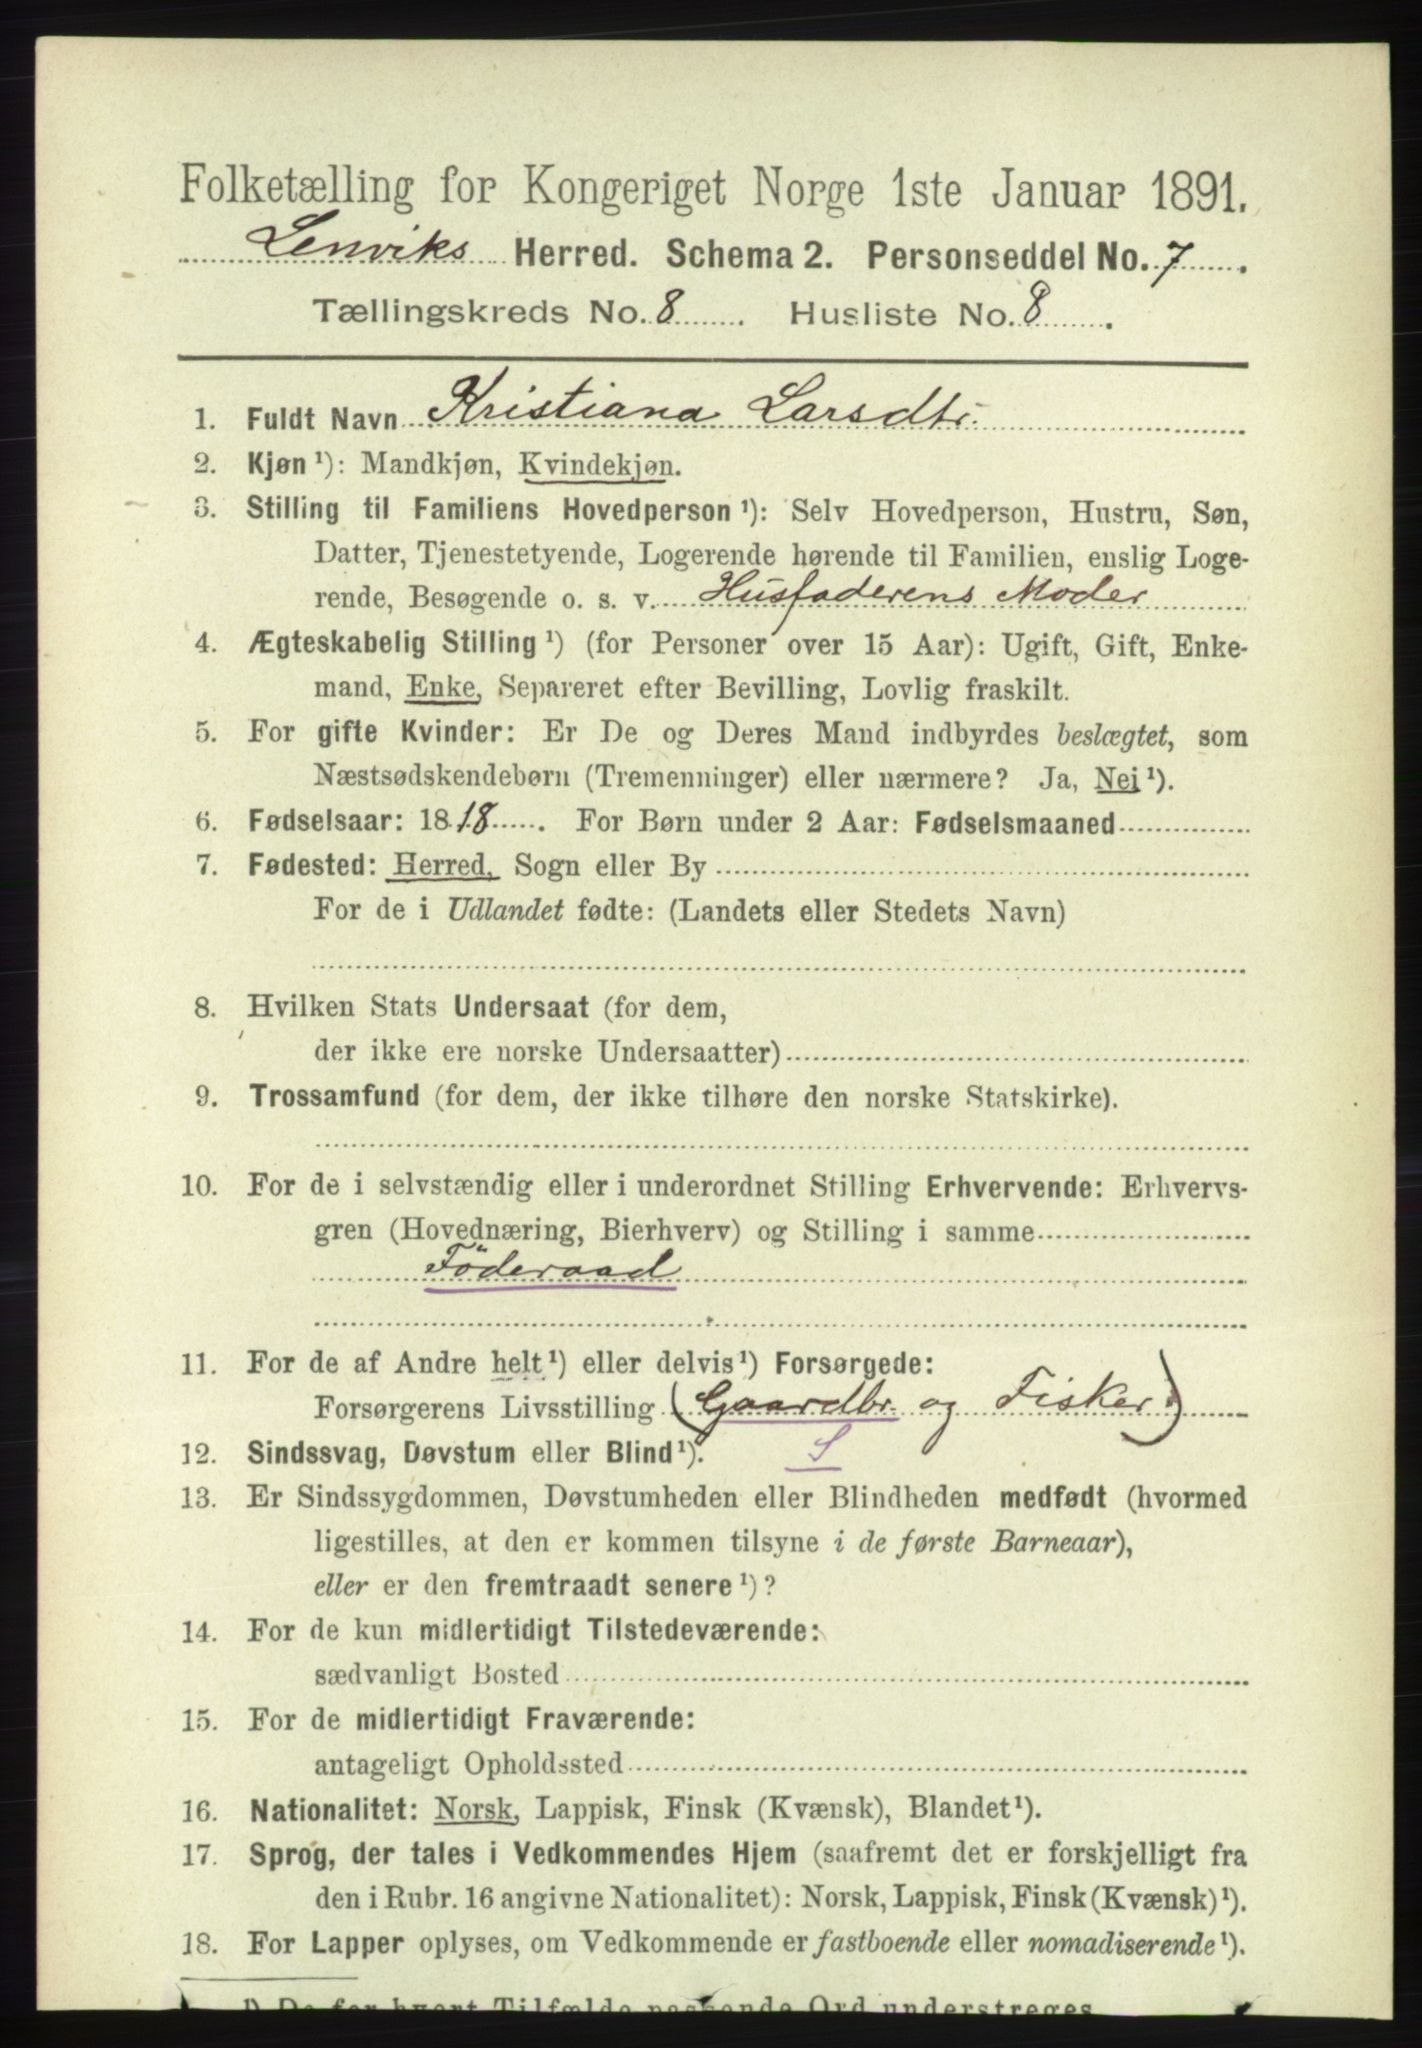 Folketælling for Kongeriget Norge 1ste Januar 1891.
Lenviks Herred. Schema 2. Personseddel No. 7.
Tællingskreds No. 8. Husliste No. 8.
1. Fuldt Navn Kristiana Larsdtr.
2. Kjøn ¹): Mandkjøn, Kvindekjøn.
3. Stilling til Familiens Hovedperson ¹): Selv Hovedperson, Hustru, Søn,
Datter, Tjenestetyende, Logerende hørende til Familien, enslig Loge-
rende, Besøgende o. s. v. Husfaderens Moder
4. Ægteskabelig Stilling ¹) (for Personer over 15 Aar): Ugift, Gift, Enke-
mand, Enke, Separeret efter Bevilling, Lovlig fraskilt.
5. For gifte Kvinder: Er De og Deres Mand indbyrdes beslægtet, som
Næstsødskendebørn (Tremenninger) eller nærmere? Ja, Nei ¹).
6. Fødselsaar: 1818. For Børn under 2 Aar: Fødselsmaaned
7. Fødested: Herred, Sogn eller By
For de i Udlandet fødte: (Landets eller Stedets Navn)
8. Hvilken Stats Undersaat (for dem,
der ikke ere norske Undersaatter)
9. Trossamfund (for dem, der ikke tilhøre den norske Statskirke).
10. For de i selvstændig eller i underordnet Stilling Erhvervende: Erhvervs-
gren (Hovednæring, Bierhverv) og Stilling i samme
Föderaad
11. For de af Andre helt ¹) eller delvis ¹) Forsørgede:
Forsørgerens Livsstilling (Gaardbr. og Fisker)
12. Sindssvag, Døvstum eller Blind ¹). S
13. Er Sindssygdommen, Døvstumheden eller Blindheden medfødt (hvormed
ligestilles, at den er kommen tilsyne i de første Barneaar),
eller er den fremtraadt senere ¹)?
14. For de kun midlertidigt Tilstedeværende:
sædvanligt Bosted
15. For de midlertidigt Fraværende:
antageligt Opholdssted
16. Nationalitet: Norsk, Lappisk, Finsk (Kvænsk), Blandet ¹).
17. Sprog, der tales i Vedkommendes Hjem (saafremt det er forskjelligt fra
den i Rubr. 16 angivne Nationalitet): Norsk, Lappisk, Finsk (Kvænsk) ¹).
18. For Lapper oplyses, om Vedkommende er fastboende eller nomadiserende ¹).
¹) De for hvert Tilfælde passende Ord understreges.